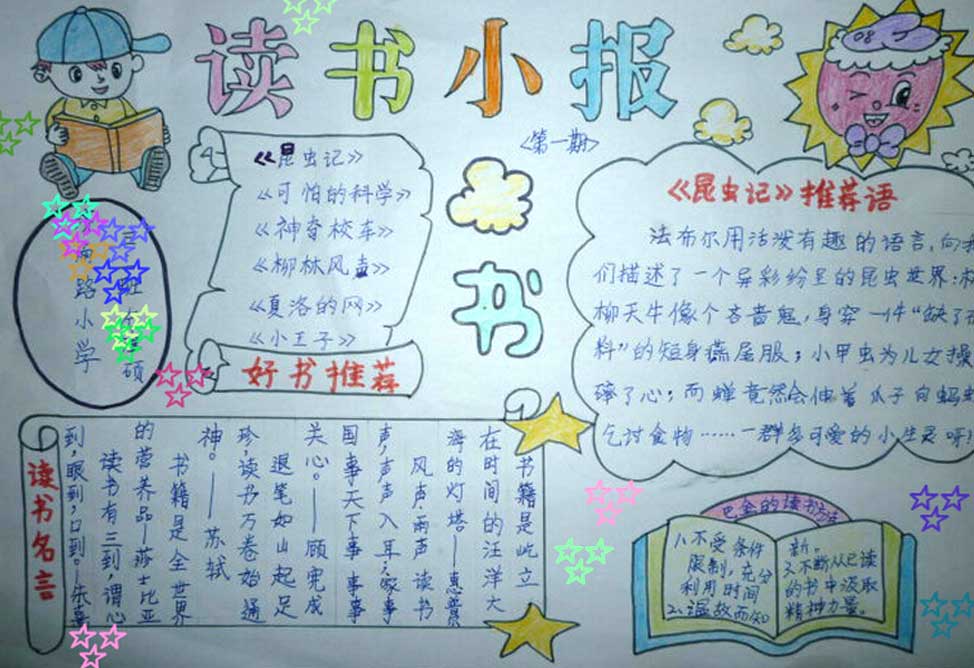 读书小报
《第一期》
《昆虫记》
《可怕的科学》
《神奇校车》
《柳林风声》
《夏洛的网》
《小王子》
好书推荐
书
路小学
硕
《昆虫记》推荐语
法布尔用活泼有趣的语言,向我
们描述了一个异彩纷呈的昆虫世界:
柳天牛像个吝啬鬼,身穿一件“缺了布
料”的短身燕尾服;小甲虫为儿女操
碎了心;而蝉竟然会伸着爪子向蚂蚁
乞讨食物……一群多可爱的小生灵呀
读书名言
书籍是屹立
在时间的汪洋大
海的灯塔。——惠普
风声雨声读书
声,声声入耳;家事
国事天下事事事
关心。——顾宪成
退笔如山起足
珍,读书万卷始通
神。——苏轼
书籍是全世界
的营养品—莎士比亚
读书有三到,谓心
到,眼到,口到。—朱熹
巴金的读书方法
1.不受条件
限制,充分
利用时间
2.温故而知
新。
3.不断从已读
的书中汲取
精神力量。